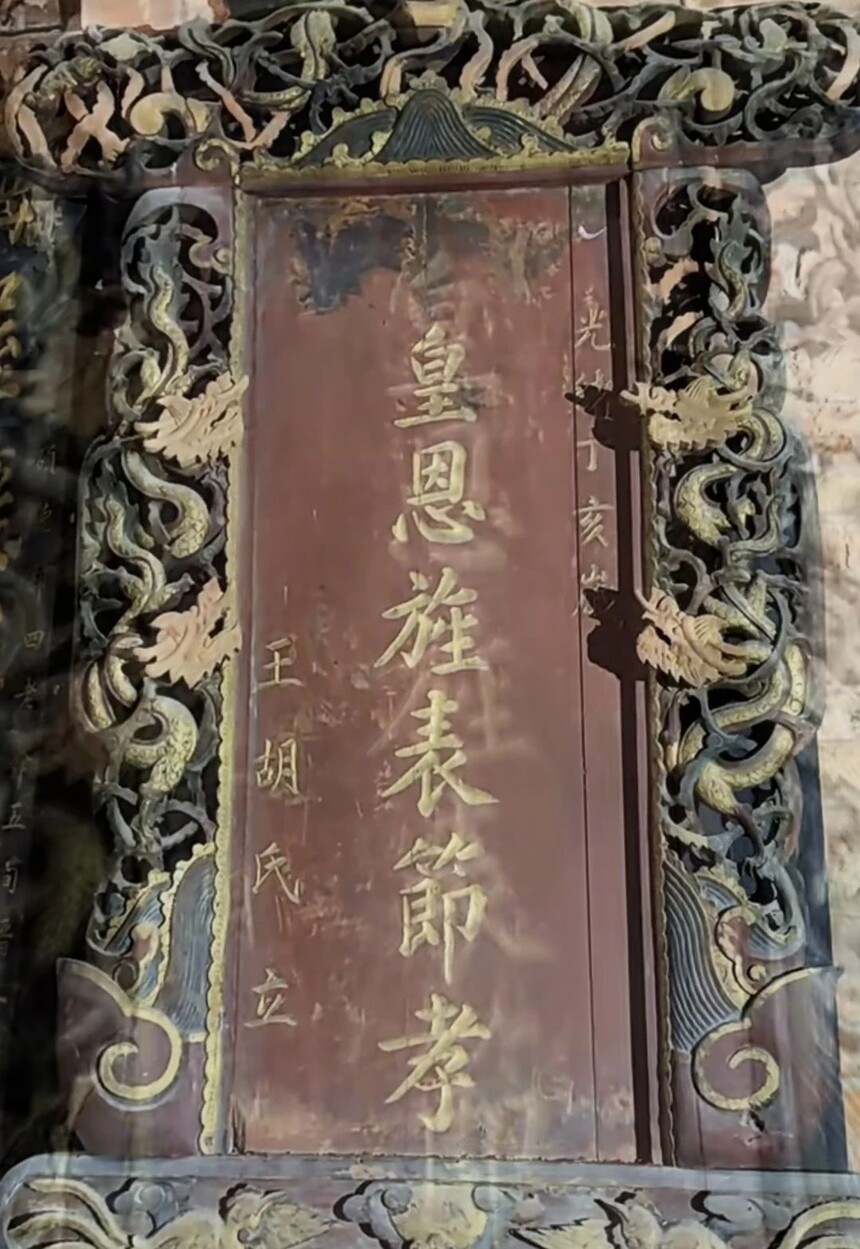 光緒丁亥歲
皇恩旌表節孝
王胡氏立